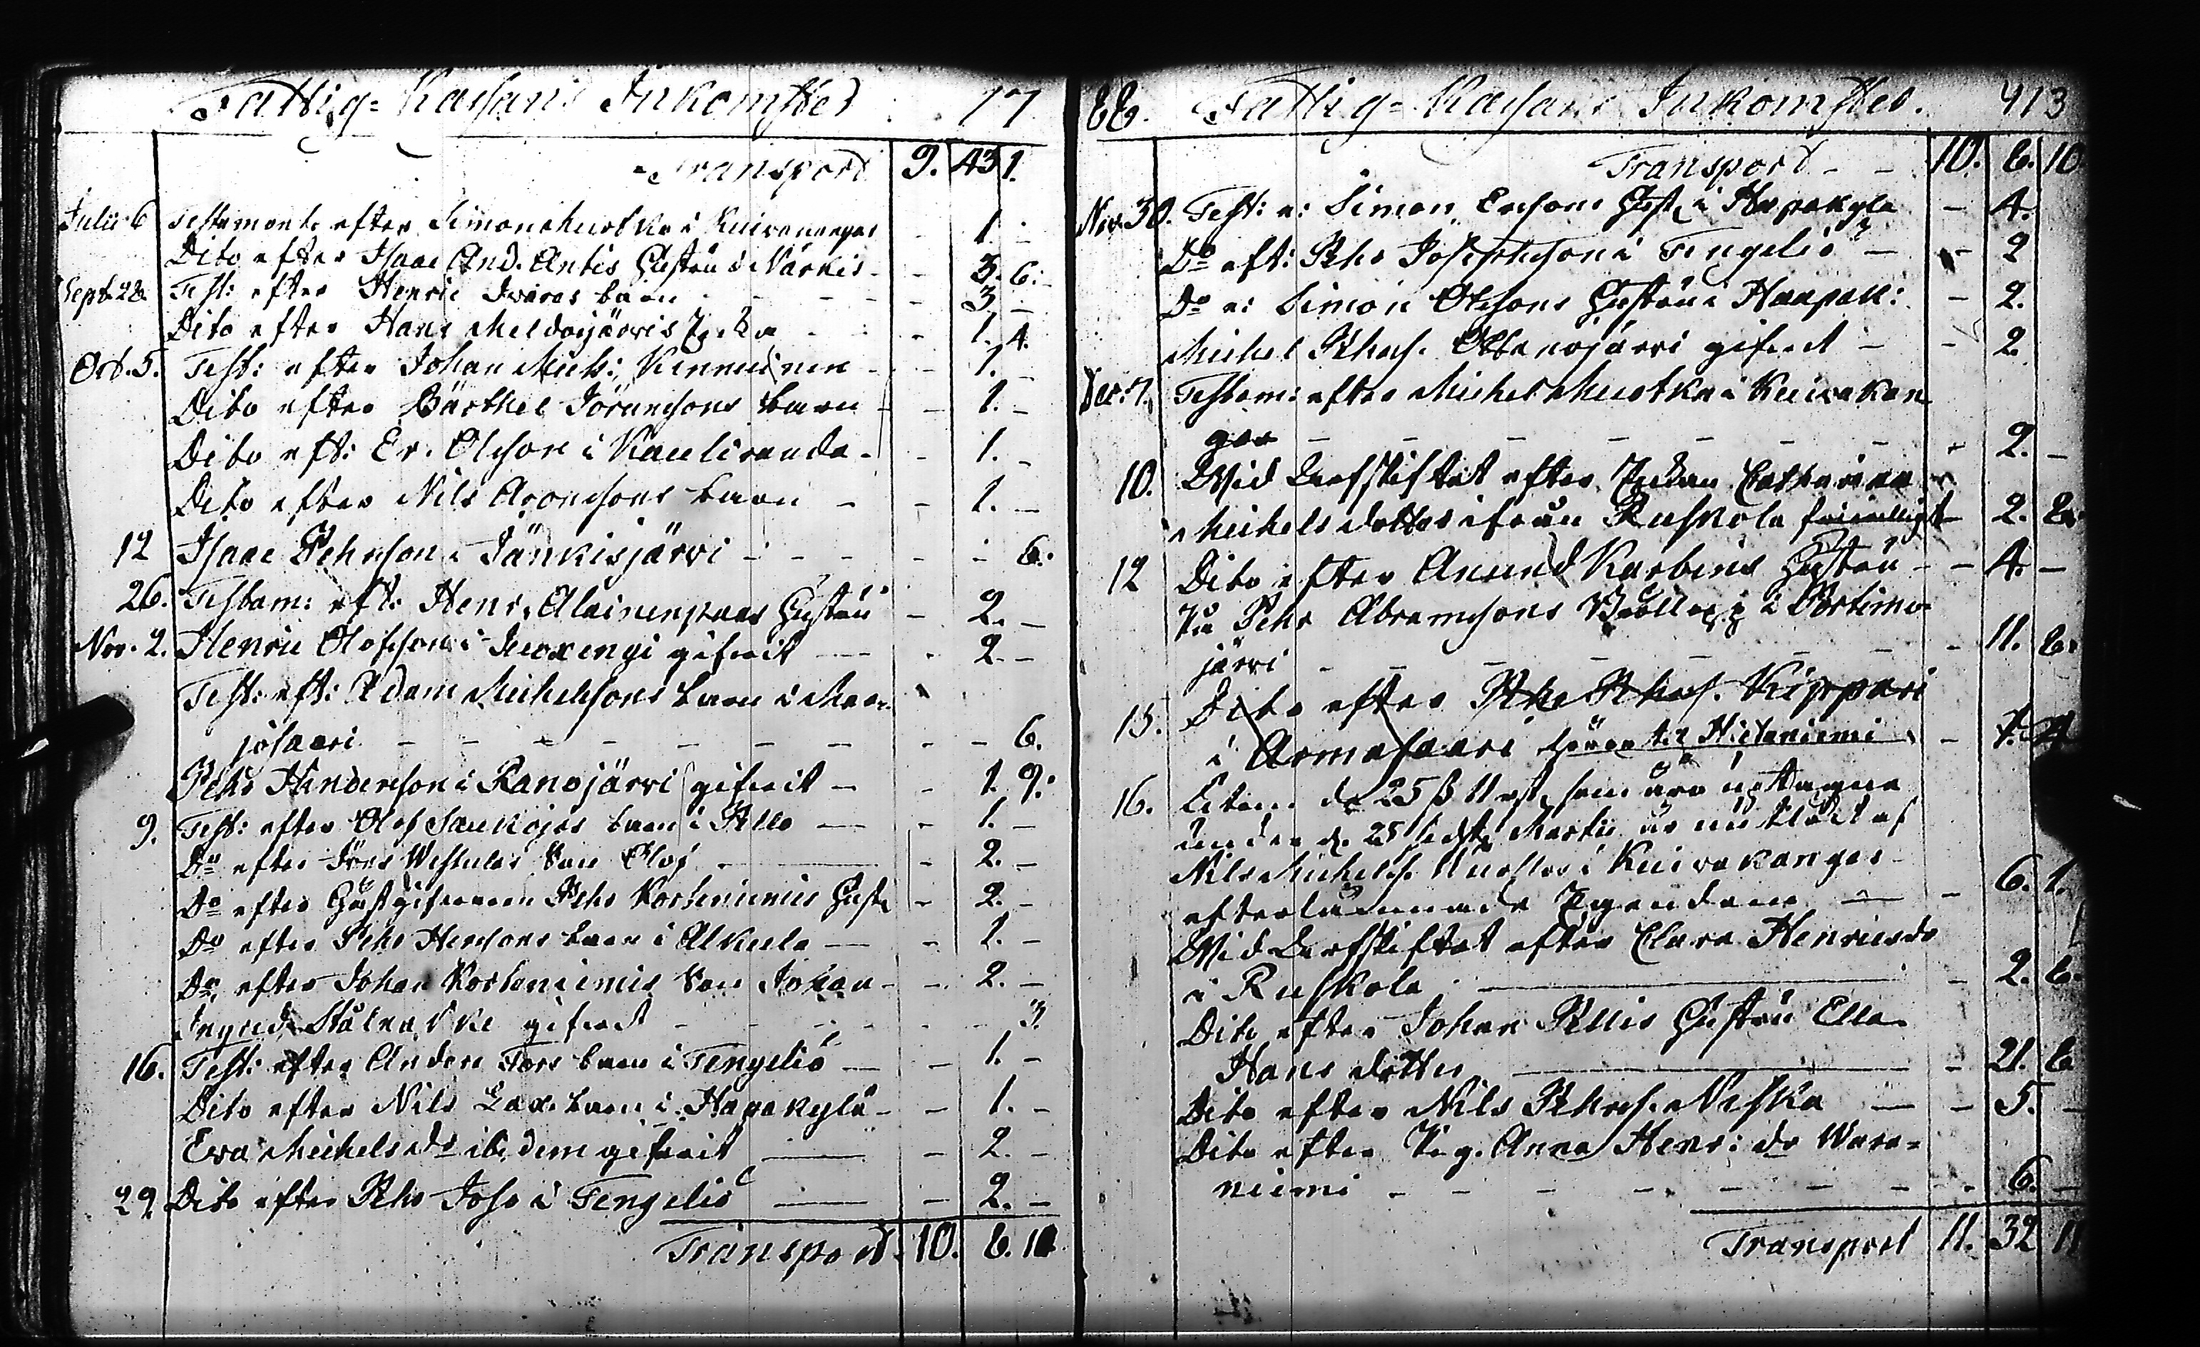 Fattig-Kassans Inkomster 17
Transport 9. 43 1.
Julii 6 Testamente efter Simon Mustka i Kuivanengas - 1. -
Dito efter Isaac And. Antis Hustru i Närkis - 3. 6.
Sept. 28. Test: efter Henric Ivaras barn - 3 -
Dito efter Hans Meldoijärvis - 1. 4.
Oct. 5. Test: efter Johan Mich: Kinnuinen - 1. -
Dito efter Bärthel Göransons barn - 1. -
Dito eft: Er. Olsson i Kauliranda - 1. -
Dito efter Nils Aronssons barn - 1. -
12 Isaac Pehrson i Jänkisjärvi - 6.
26. Testam: eft: Henr. Alainenpääs Hustru - 2. -
Nov. 2. Henric Olofsson i Juoxengi gifvit - 2. -
Test: eft: Adam Michelssons barn i Mar-
josaari - - 6.
Pehr Hindersson i Ranojärvi gifvit - 1. 9.
9. Test: efter Olof Saukojas barn i Pello - 1. -
Do efter Jöns Westulas Son Olof - 2. -
Do efter Gästgifvaren Pehr Korteniemis Hust. - 2. -
Do efter Pehr Hersons barn i Alkula - 1. -
Do efter Johan Korteniemis Son Johan - 2. -
Stålnacke gifvit - 3.
16. Test: efter Anders Fors barn i Tengeliö - 1. -
Dito efter Nils Lax. barn i Hapakylä - 1. -
Eva Michelsdr ibidem gifvit - 2. -
29 Dito efter Pehr Johs i Tengeliö - 2. -
Transport 10. 6. 10
86. Fattig-Kassans Inkomster. 413
Transport 10. 6. 10
Nov. 30. Test: e: Simon Ersons Hust. i Hapakyla - 4.
Do eft: Pehr Josephsson i Tengeliö - 2
Do e: Simon Olssons Hustru i Haapak: - 2.
Michel Pehrs. Ottanojärvi gifvit - 2.
Dec: 7. Testam: efter Michel Mustka i Kuivakan
gas - 2. -
10. Wid Arfskiftet efter Enkan Catharina
Michelsdotter ifrån Ruskola - 2. 8.
12 Dito efter Anund Karbins Hustru - 4. -
Pehr Abramssons i Portimo-
järvi - 11. 8.
15. Dito efter Pehr Pehrs. Kippari
i Armasaari hörer til Hietaniemi -
16. de 25 ß som äro uttagne
under d. 25 Martii är nu af
Nils Michelss. i Kuivakangas
efterlämnade Egendom - 6. 1.
Wid Arfskiftet efter Clara Henricsdr
i Ruskola - 2. 8.
Dito efter Johan Pellis Hustru Ella
Hans dotter - 21. 8
Dito efter Nils Pehrs. Niska - 5. -
Dito efter Pig. Anna Henr: dr Wara-
niemi - 6. -
Transport 11. 32 11